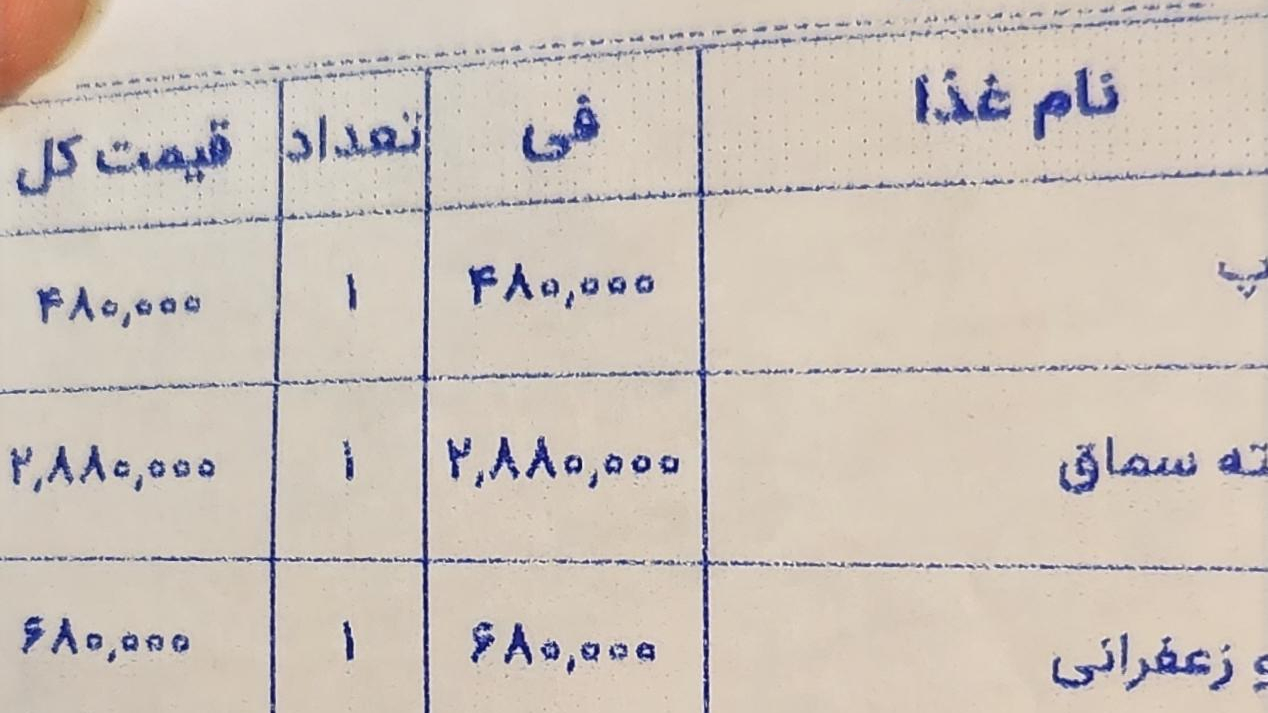 نام غذا فی تعداد قیمت کل
۴۸۰,۰۰۰ ۱ ۴۸۰,۰۰۰
سماق ۲,۸۸۰,۰۰۰ ۱ ۲,۸۸۰,۰۰۰
زعفرانی ۶۸۰,۰۰۰ ۱ ۶۸۰,۰۰۰